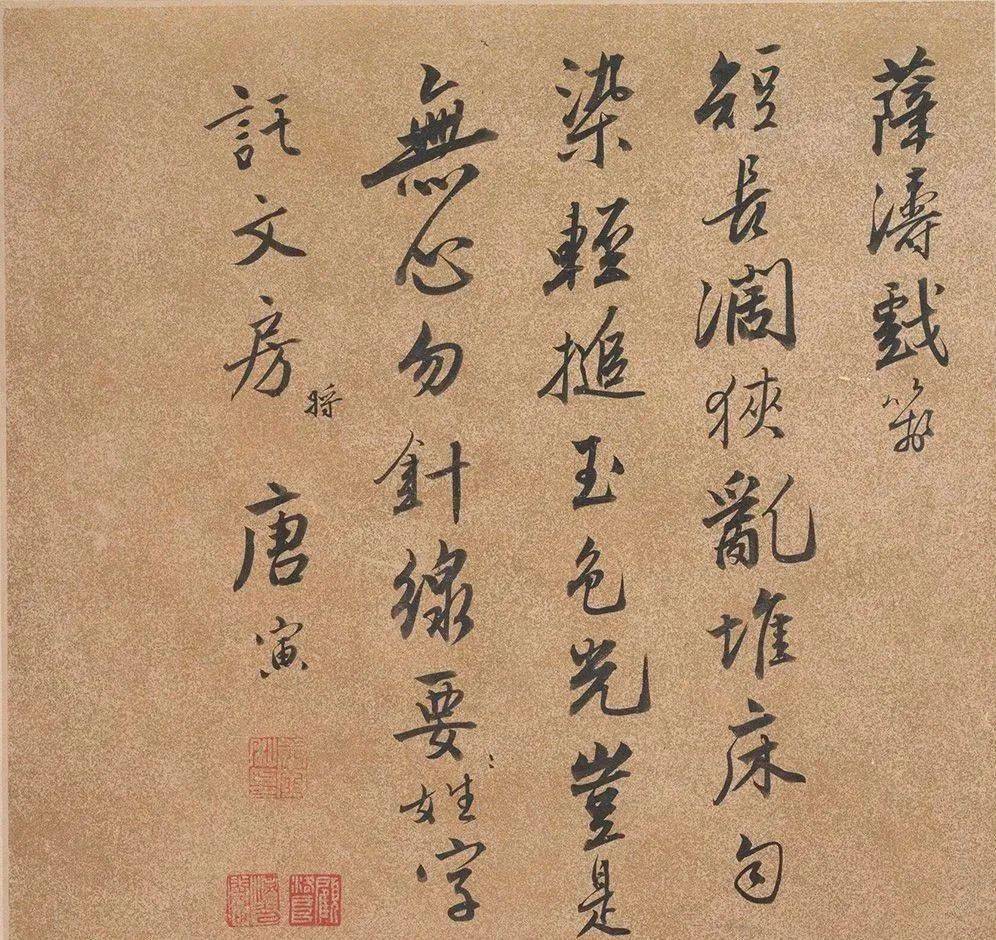 薛濤戲箋
短長濶狹亂堆床匀
染輕搥玉色光豈是
無心勿針線要姓字
將
託文房 唐寅